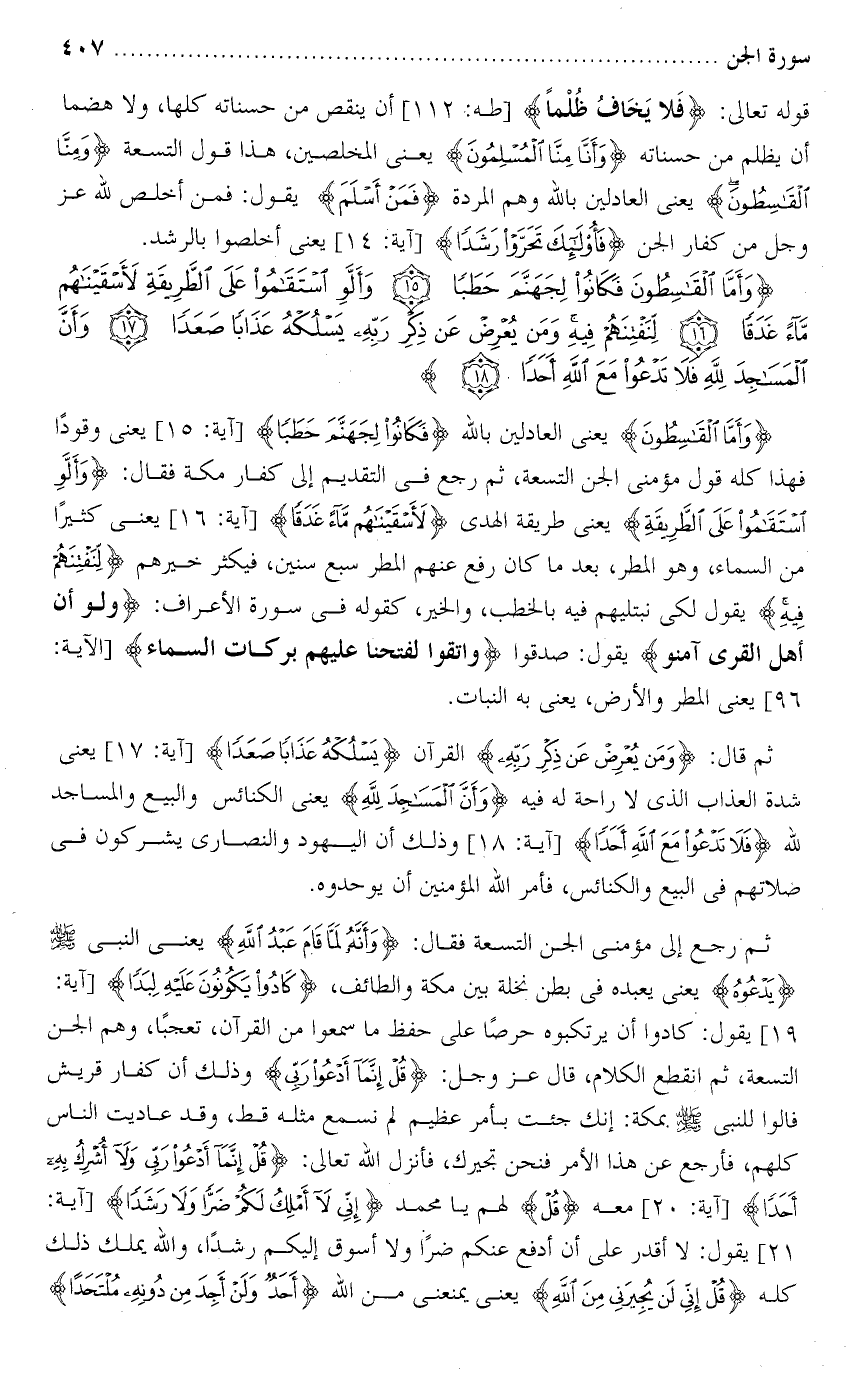 سورة الجن ........................................................................ ٤٠٧
قوله تعالى: ﴿فَلا يَخَافُ ظُلْماً﴾ [طه: ١١٢] أن ينقص من حسناته كلها، ولا هضما
أن يظلم من حسناته ﴿وَأَنَّا مِنَّا ٱلْمُسْلِمُونَ﴾ يعنى المخلصين، هذا قول التسعة ﴿وَمِنَّا
ٱلْقَٰسِطُونَۖ﴾ يعنى العادلين بالله وهم المردة ﴿فَمَنْ أَسْلَمَ﴾ يقول: فمن أخلص لله عز
وجل من كفار الجن ﴿فَأُو۟لَٰٓئِكَ تَحَرَّوْا۟ رَشَدًا﴾ [آية: ١٤] يعنى أخلصوا بالرشد.
﴿وَأَمَّا ٱلْقَٰسِطُونَ فَكَانُوا۟ لِجَهَنَّمَ حَطَبًا ١٥ وَأَلَّوِ ٱسْتَقَٰمُوا۟ عَلَى ٱلطَّرِيقَةِ لَأَسْقَيْنَٰهُم
مَّآءً غَدَقًا ١٦ لِّنَفْتِنَهُمْ فِيهِۚ وَمَن يُعْرِضْ عَن ذِكْرِ رَبِّهِۦ يَسْلُكْهُ عَذَابًا صَعَدًا ١٧ وَأَنَّ
ٱلْمَسَٰجِدَ لِلَّهِ فَلَا تَدْعُوا۟ مَعَ ٱللَّهِ أَحَدًا ١٨ ﴾
﴿وَأَمَّا ٱلْقَٰسِطُونَ﴾ يعنى العادلين بالله ﴿فَكَانُوا۟ لِجَهَنَّمَ حَطَبًا﴾ [آية: ١٥] يعنى وقودًا
فهذا كله قول مؤمنى الجن التسعة، ثم رجع فى التقديم إلى كفار مكة فقال: ﴿وَأَلَّوِ
ٱسْتَقَٰمُوا۟ عَلَى ٱلطَّرِيقَةِ﴾ يعنى طريقة الهدى ﴿لَأَسْقَيْنَٰهُم مَّآءً غَدَقًا﴾ [آية: ١٦] يعنى كثيرًا
من السماء، وهو المطر، بعد ما كان رفع عنهم المطر سبع سنين، فيكثر خيرهم ﴿لِّنَفْتِنَهُمْ
فِيهِۚ﴾ يقول لكى نبتليهم فيه بالخطب، والخير، كقوله فى سورة الأعراف: ﴿ولو أن
أهل القرى آمنو﴾ يقول: صدقوا ﴿واتقوا لفتحنا عليهم بركات السماء﴾ [الآية:
٩٦] يعنى المطر والأرض، يعنى به النبات.
ثم قال: ﴿وَمَن يُعْرِضْ عَن ذِكْرِ رَبِّهِۦ﴾ القرآن ﴿يَسْلُكْهُ عَذَابًا صَعَدًا﴾ [آية: ١٧] يعنى
شدة العذاب الذى لا راحة له فيه ﴿وَأَنَّ ٱلْمَسَٰجِدَ لِلَّهِ﴾ يعنى الكنائس والبيع والمساجد
لله ﴿فَلَا تَدْعُوا۟ مَعَ ٱللَّهِ أَحَدًا﴾ [آية: ١٨] وذلك أن اليهود والنصارى يشركون فى
صلاتهم فى البيع والكنائس، فأمر الله المؤمنين أن يوحدوه.
ثم رجع إلى مؤمنى الجن التسعة فقال: ﴿وَأَنَّهُۥ لَمَّا قَامَ عَبْدُ ٱللَّهِ﴾ يعنى النبى ﷺ
﴿يَدْعُوهُ﴾ يعنى يعبده فى بطن نخلة بين مكة والطائف، ﴿كَادُوا۟ يَكُونُونَ عَلَيْهِ لِبَدًا﴾ [آية:
١٩] يقول: كادوا أن يرتكبوه حرصًا على حفظ ما سمعوا من القرآن، تعجبًا، وهم الجن
التسعة، ثم انقطع الكلام، قال عز وجل: ﴿قُلْ إِنَّمَآ أَدْعُوا۟ رَبِّى﴾ وذلك أن كفار قريش
قالوا للنبى ﷺ بمكة: إنك جئت بأمر عظيم لم نسمع مثله قط، وقد عاديت الناس
كلهم، فأرجع عن هذا الأمر فنحن نجيرك، فأنزل الله تعالى: ﴿قُلْ إِنَّمَآ أَدْعُوا۟ رَبِّى وَلَآ أُشْرِكُ بِهِۦٓ
أَحَدًا﴾ [آية: ٢٠] معه ﴿قُلْ﴾ لهم يا محمد ﴿إِنِّى لَآ أَمْلِكُ لَكُمْ ضَرًّا وَلَا رَشَدًا﴾ [آية:
٢١] يقول: لا أقدر على أن أدفع عنكم ضرًا ولا أسوق إليكم رشدًا، والله يملك ذلك
كله ﴿قُلْ إِنِّى لَن يُجِيرَنِى مِنَ ٱللَّهِ﴾ يعنى يمنعنى من الله ﴿أَحَدٌ وَلَنْ أَجِدَ مِن دُونِهِۦ مُلْتَحَدًا﴾